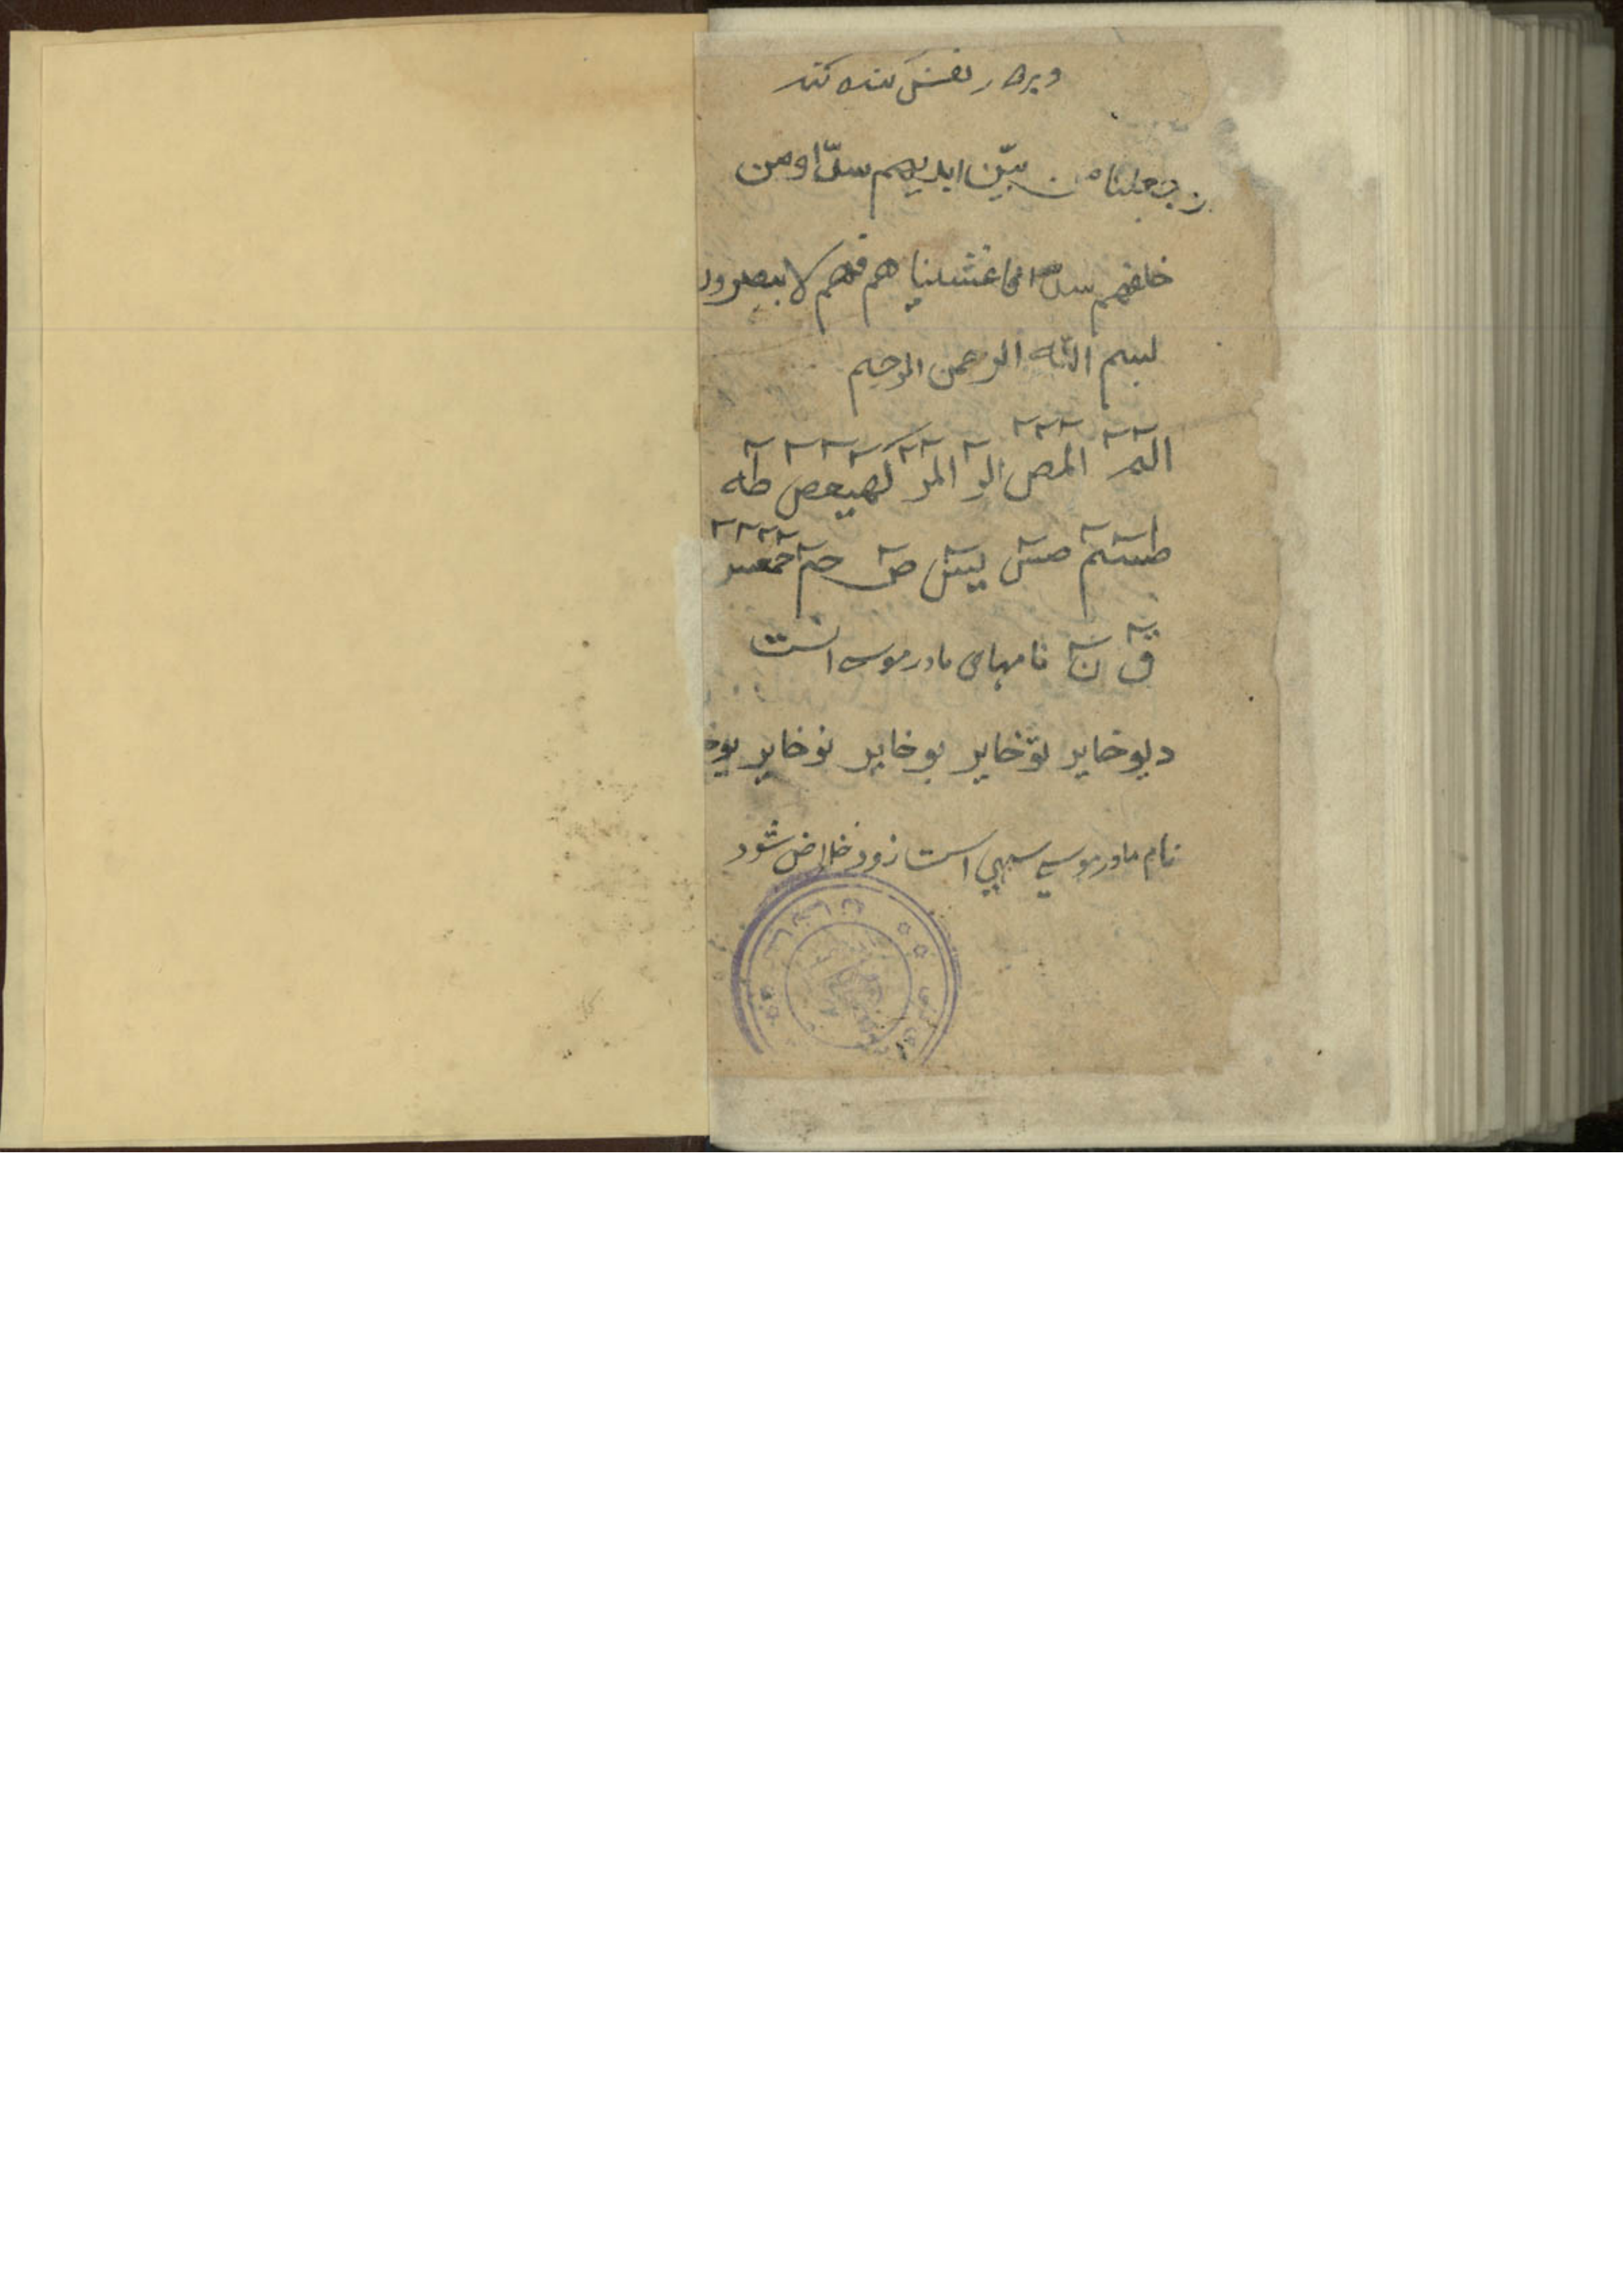 و بر هر نقش کنده کند
و جعلنا من بین ایدیهم سدّا و من
خلفهم سدّا فاغشیناهم فهم لا یبصرون
بسم الله الرحمن الرحیم
الٓمٓ الٓمٓصٓ الٓرٓ الٓمٓرٓ کٓهٰیٰعٓصٓ طٰهٰ
طٰسٓمٓ طٰسٓ یٰسٓ صٓ حٰمٓ حٰمٓعٓسٓ
قٓ نٓ نامهای مادر موسی است
دیوخایر نوخایر بوخایر نوخایر
نام مادر موسی است زود خلاص شود